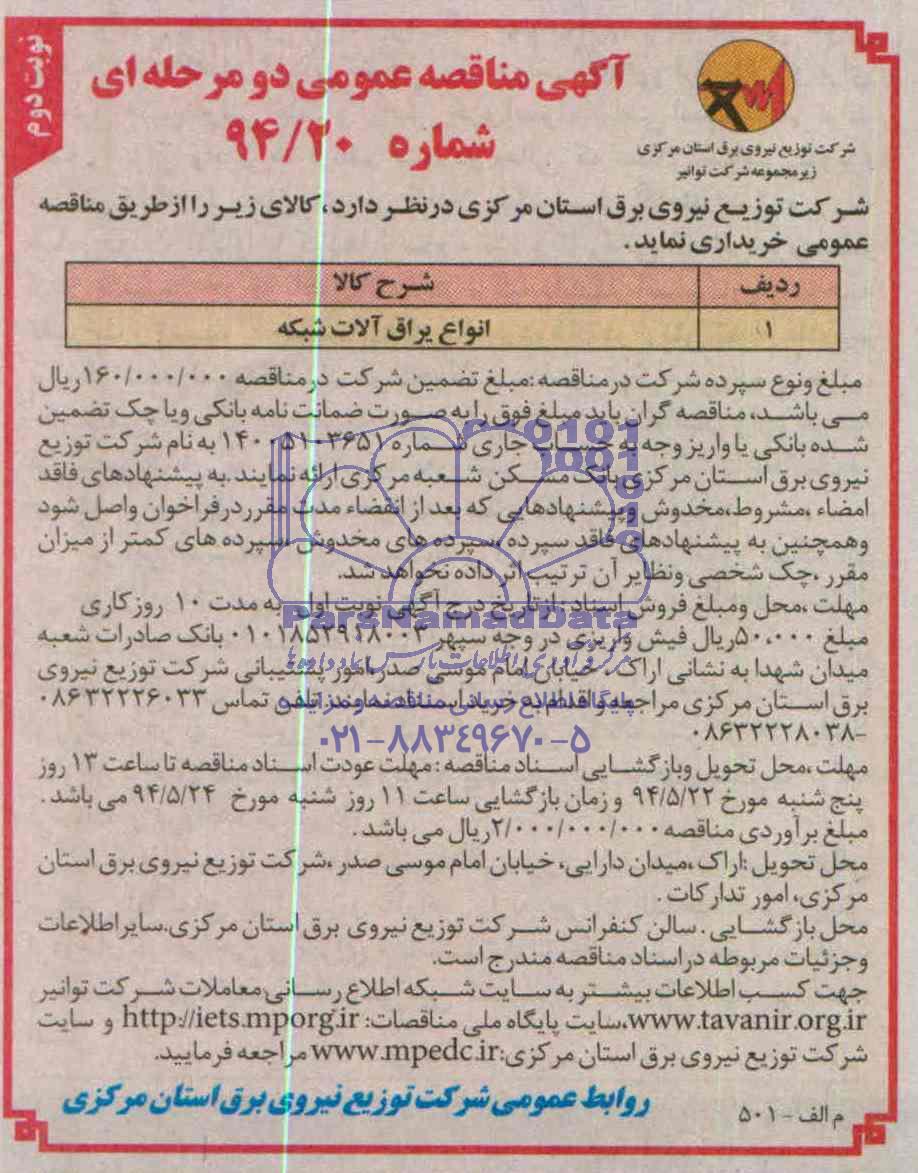 نوبت دوم
آگهی مناقصه عمومی دو مرحله ای
شماره ۹۴/۲۰
شرکت توزیع نیروی برق استان مرکزی
زیرمجموعه شرکت توانیر
شرکت توزیع نیروی برق استان مرکزی درنظر دارد،کالای زیر را ازطریق مناقصه
عمومی خریداری نماید.
ردیف شرح کالا
۱ انواع یراق آلات شبکه
مبلغ ونوع سپرده شرکت درمناقصه :مبلغ تضمین شرکت درمناقصه ۱۶۰/۰۰۰/۰۰۰ریال
می باشد، مناقصه گران باید مبلغ فوق رابه صورت ضمانت نامه بانکی ویا چک تضمین
شده بانکی یا واریز وجه به حساب جاری شماره ۱۴۰۰۵۱۰۳۶۵۱ به نام شرکت توزیع
نیروی برق استان مرکزی بانک مسکن شعبه مرکزی ارائه نمایند.به پیشنهادهای فاقد
امضاء ،مشروط،مخدوش وپیشنهادهایی که بعد از انقضاء مدت مقرر درفراخوان واصل شود
وهمچنین به پیشنهادهای فاقد سپرده ،سپرده های مخدوش ،سپرده های کمتر از میزان
مقرر ،چک شخصی ونظایر آن ترتیب اثر داده نخواهد شد.
مهلت ،محل ومبلغ فروش اسناد :ازتاریخ درج آگهی نوبت اول به مدت ۱۰ روز کاری
مبلغ ۵۰،۰۰۰ریال فیش واریزی در وجه سپهر ۰۱۰۱۸۵۲۹۱۸۰۰۳ بانک صادرات شعبه
میدان شهدا به نشانی اراک ، خیابان امام موسی صدر،امور پشتیبانی شرکت توزیع نیروی
برق استان مرکزی مراجعه واقدام به خرید اسناد نمایند. تلفن تماس ۰۸۶۳۲۲۲۶۰۳۳
-۰۸۶۳۲۲۲۸۰۳۸
مهلت ،محل تحویل وبازگشایی اسناد مناقصه : مهلت عودت اسناد مناقصه تا ساعت ۱۳ روز
پنج شنبه مورخ ۹۴/۵/۲۲ و زمان بازگشایی ساعت ۱۱ روز شنبه مورخ ۹۴/۵/۲۴ می باشد.
مبلغ برآوردی مناقصه ۲/۰۰۰/۰۰۰/۰۰۰ریال می باشد.
محل تحویل :اراک ،میدان دارایی، خیابان امام موسی صدر ،شرکت توزیع نیروی برق استان
مرکزی، امور تدارکات .
محل بازگشایی . سالن کنفرانس شرکت توزیع نیروی برق استان مرکزی.سایر اطلاعات
وجزئیات مربوطه در اسناد مناقصه مندرج است.
جهت کسب اطلاعات بیشتر به سایت شبکه اطلاع رسانی معاملات شرکت توانیر
www.tavanir.org.ir،سایت پایگاه ملی مناقصات: http://iets.mporg.ir و سایت
شرکت توزیع نیروی برق استان مرکزی:www.mpedc.ir مراجعه فرمایید.
روابط عمومی شرکت توزیع نیروی برق استان مرکزی
م الف - ۵۰۱
ParsNamadData
مرکز فرآوری اطلاعات پارس نماد داده ها
پایگاه اطلاع رسانی مناقصه و مزایده
۰۲۱-۸۸۳۴۹۶۷۰-۵